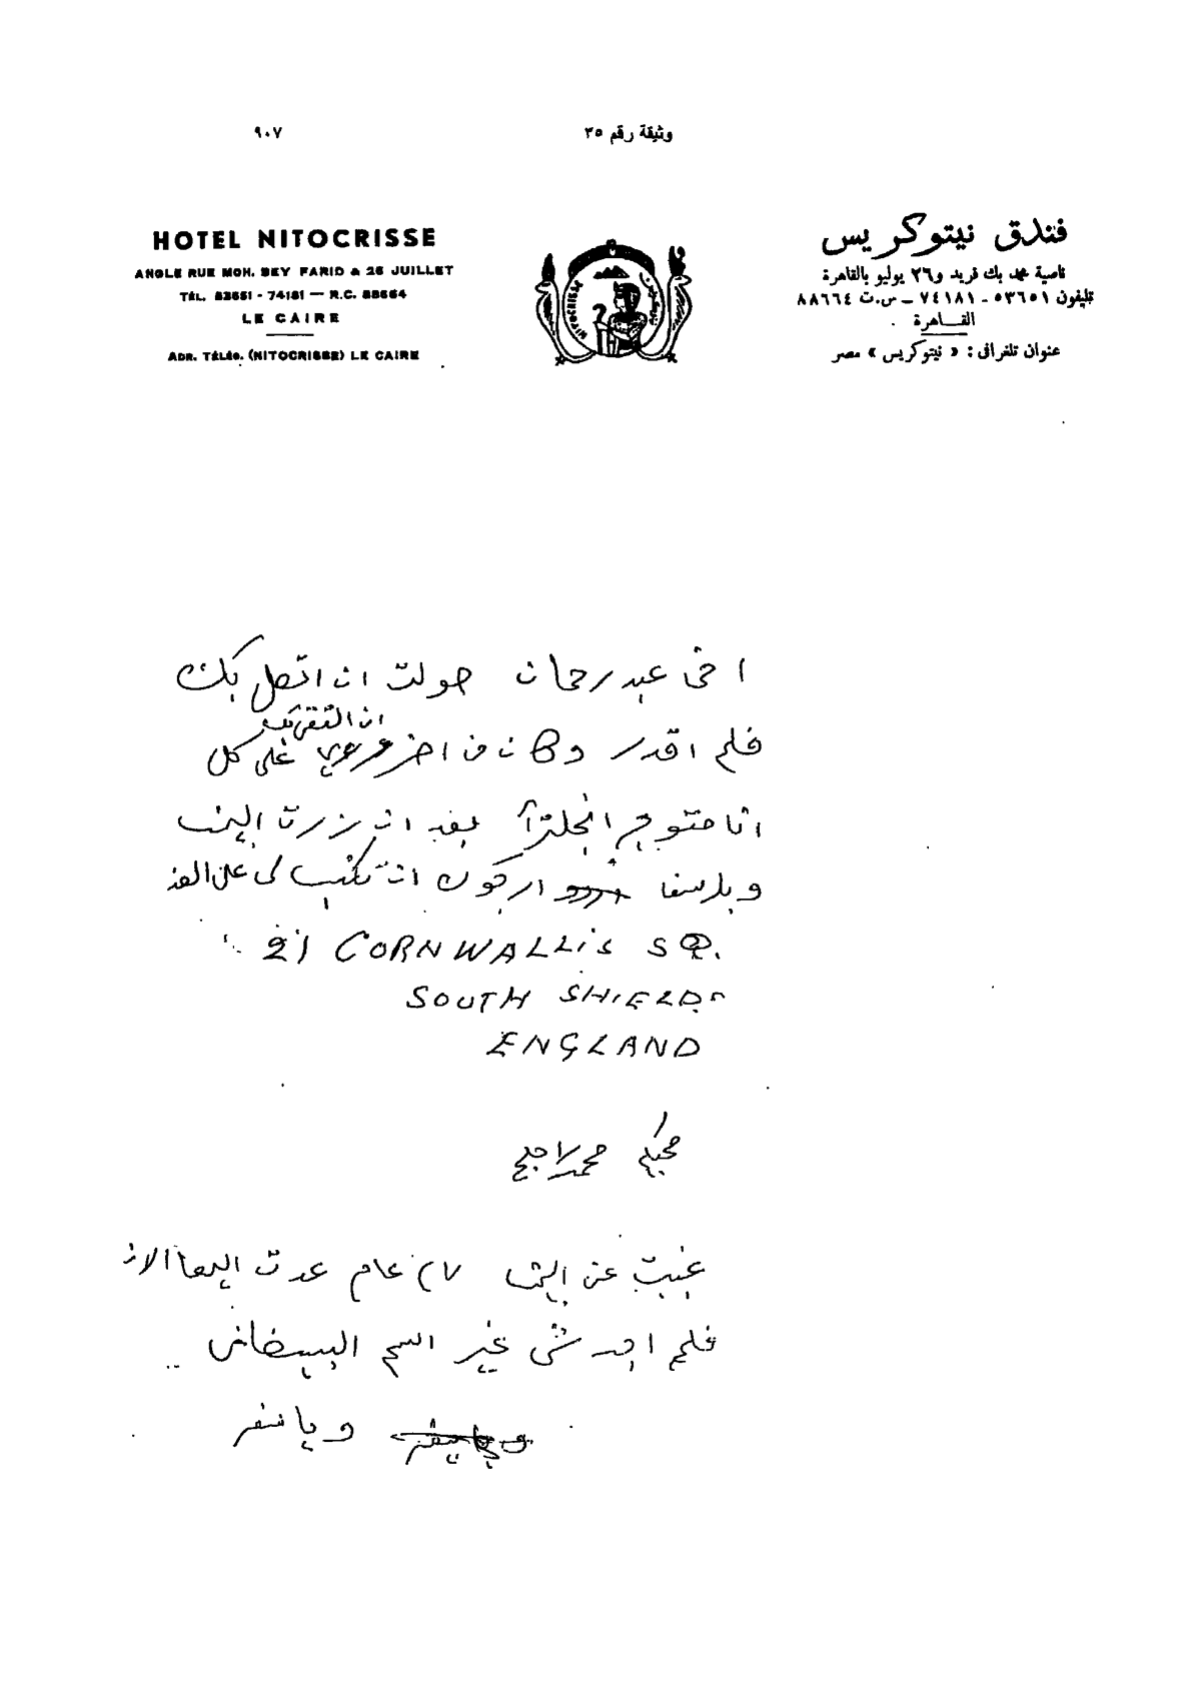 وثيقة رقم ٣٥
٩٠٧
HOTEL NITOCRISSE
ANGLE RUE MOH. BEY FARID & 26 JUILLET
TÉL. 53651 - 74181 — R.C. 88664
LE CAIRE
ADR. TÉLÉG. (NITOCRISSE) LE CAIRE
NITOCRISSE
فندق نيتوكريس
ناصية محمد بك فريد و٢٦ يوليو بالقاهرة
تليفون ٥٣٦٥١ - ٧٤١٨١ – س.ت ٨٨٦٦٤
القـــاهرة
عنوان تلغرافى : « نيتوكريس » مصر
اخى عبد رحمان حولت ان اتصل بك
ان التقى بك
فلم اقدر وكان من اخر على كل
انا متوجه انجلترا بعد ان زرت اليمن
ويلسفا ارجوك ان تكتب لى على
21 CORNWALLIS SQ.
SOUTH SHIELDS
ENGLAND
محبكم محمد
غيبت عن اليمن ٢٧ عام عدت اليها الان
فلم اجد شى غير اسم البيضانى
ويا سفر